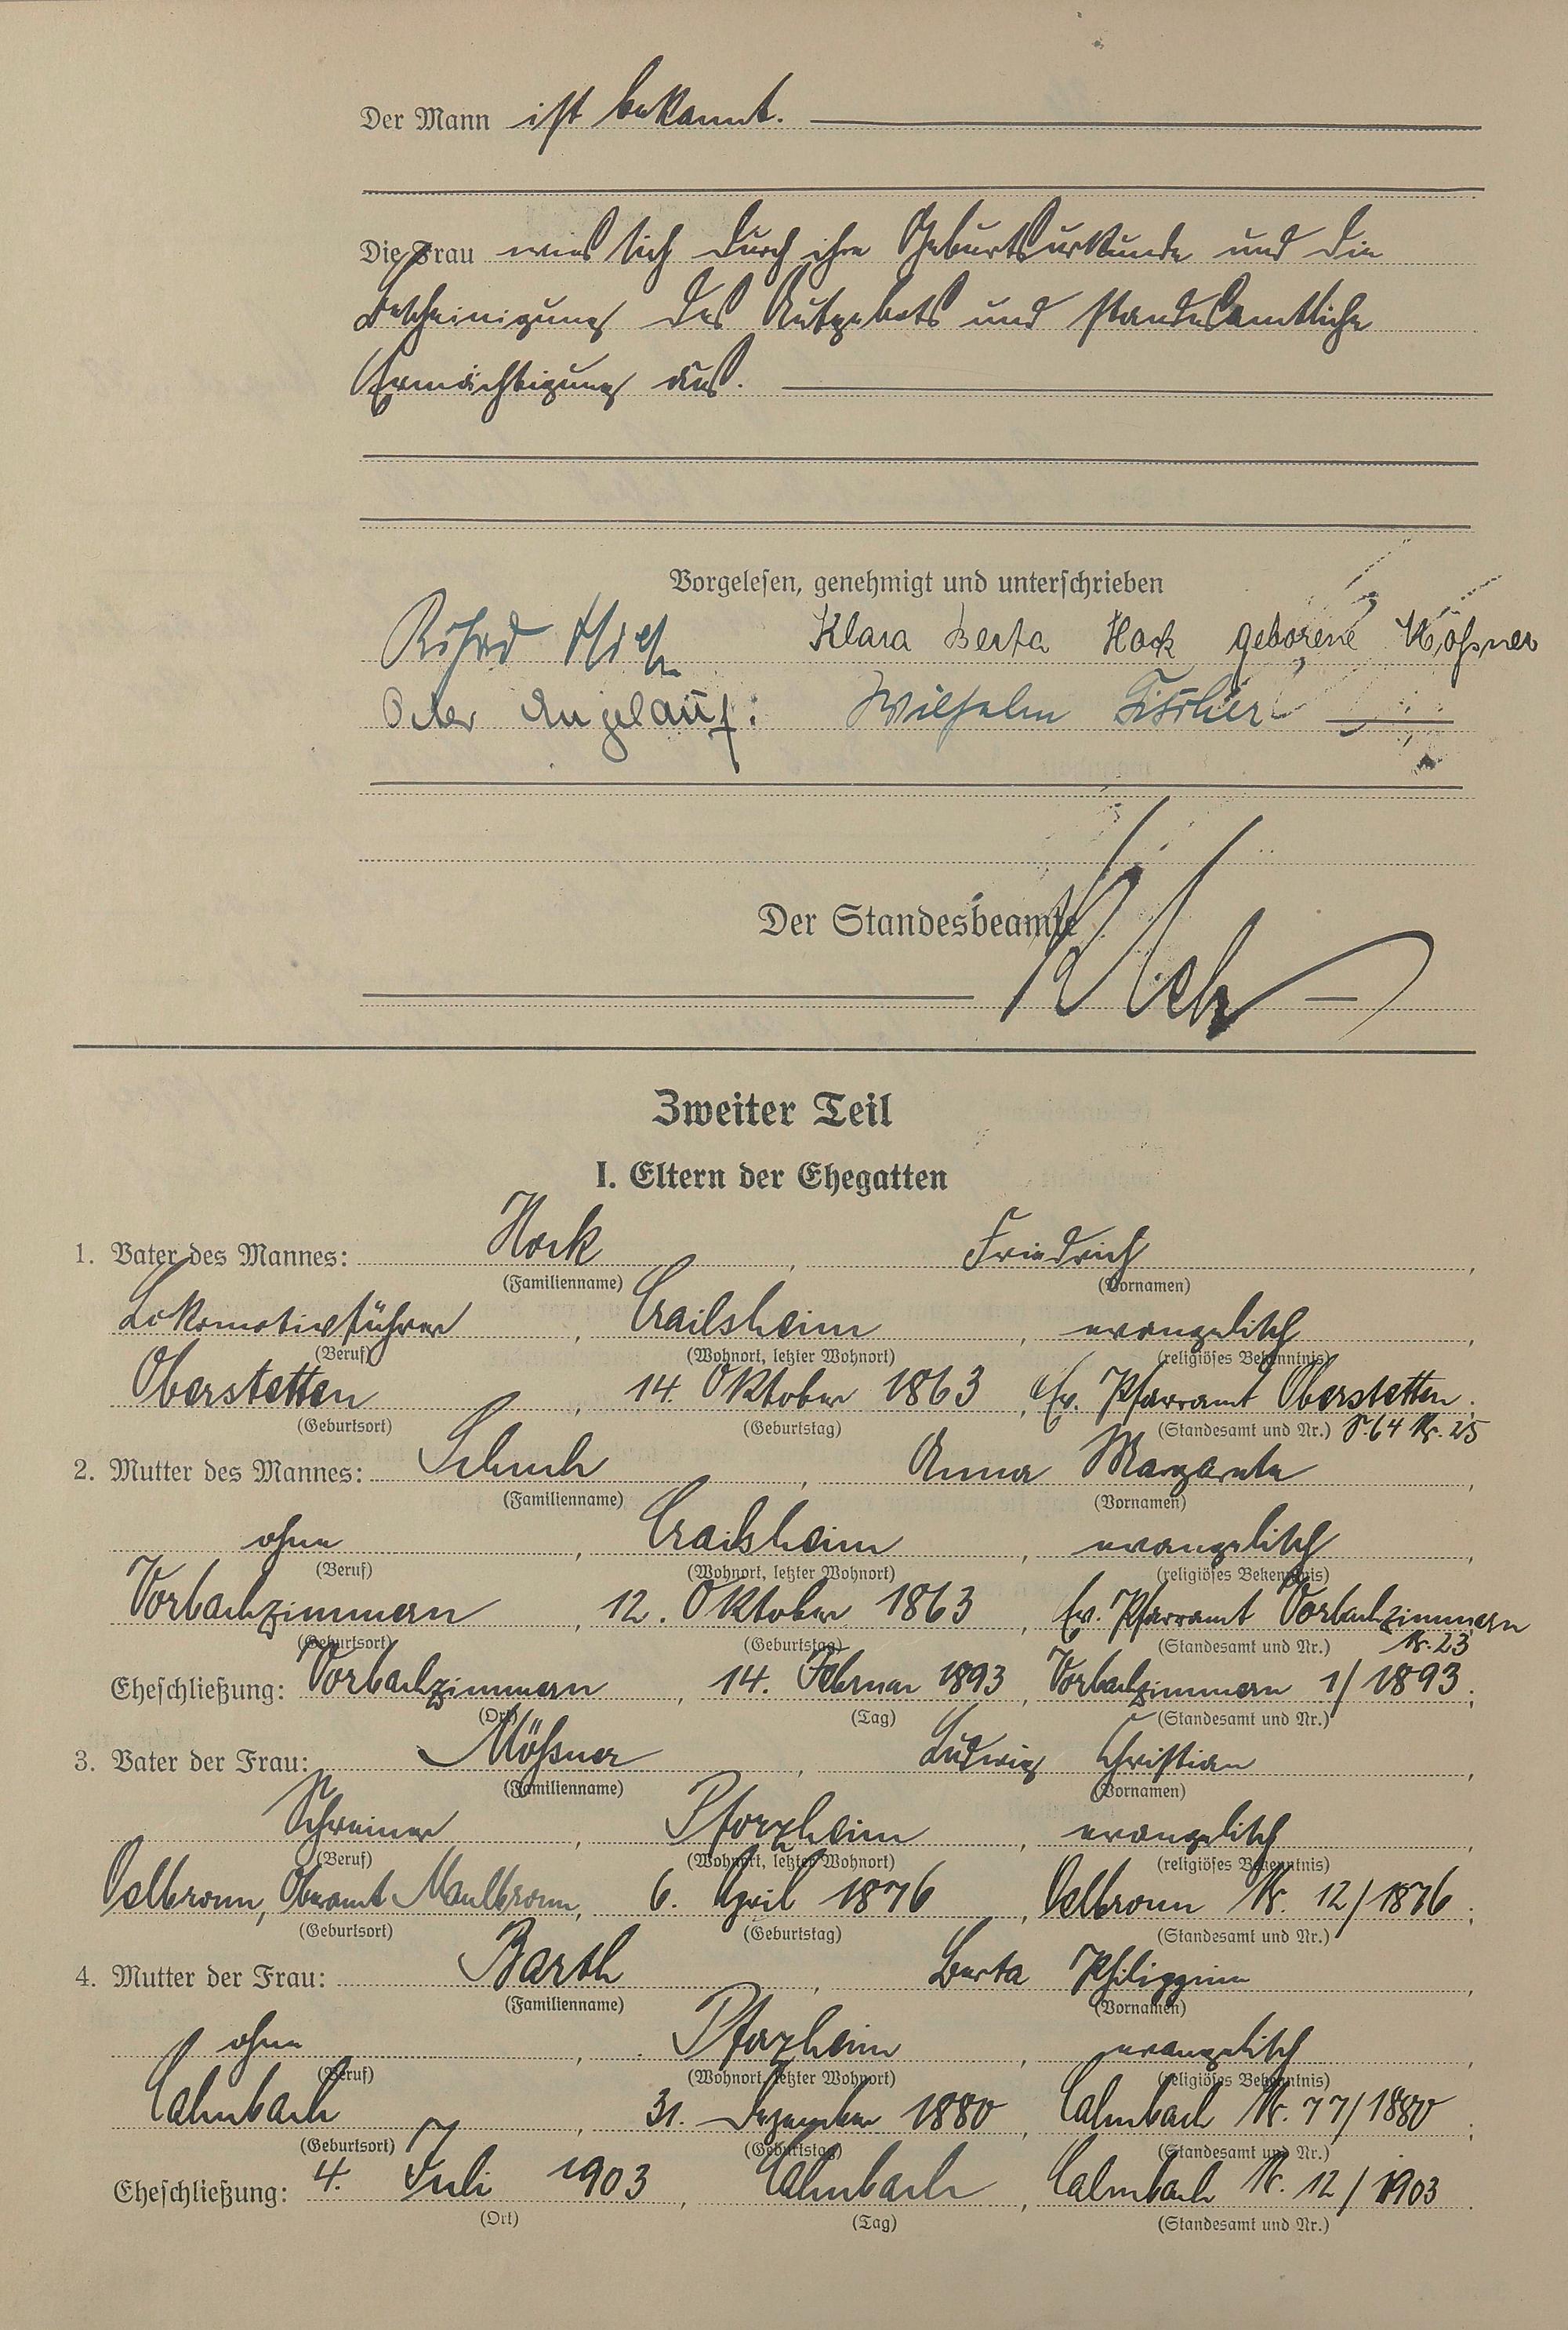 Der Mann ist bekannt.
Die Frau wies sich durch ihre Geburtsurkunde und die
Bescheinigung des Aufgebots und standesamtliche
Ermächtigung aus.
Vorgelesen, genehmigt und unterschrieben
Klara Berta Hock geborene Mößner
Wilhelm Fischer
Der Standesbeamte
Zweiter Teil
I. Eltern der Ehegatten
1. Vater des Mannes: Hock, Friedrich,
(Familienname) (Vornamen)
Lokomotivführer, Crailsheim, evangelisch,
(Beruf) (Wohnort, letzter Wohnort) (religiöses Bekenntnis)
Oberstetten, 14. Oktober 1863, Ev. Pfarramt Oberstetten.
(Geburtsort) (Geburtstag) (Standesamt und Nr.) S. 64 Nr. 25
2. Mutter des Mannes: Schuh, Anna Margareta,
(Familienname) (Vornamen)
ohne, Crailsheim, evangelisch,
(Beruf) (Wohnort, letzter Wohnort) (religiöses Bekenntnis)
Vorbachzimmern, 12. Oktober 1863, Ev. Pfarramt Vorbachzimmern
(Geburtsort) (Geburtstag) (Standesamt und Nr.) Nr. 23
Eheschließung: Vorbachzimmern, 14. Februar 1893, Vorbachzimmern 1/1893;
(Ort) (Tag) (Standesamt und Nr.)
3. Vater der Frau: Mößner, Ludwig Christian,
(Familienname) (Vornamen)
Schreiner, Pforzheim, evangelisch,
(Beruf) (Wohnort, letzter Wohnort) (religiöses Bekenntnis)
Oelbronn, Oberamt Maulbronn, 6. April 1876, Oelbronn Nr. 12/1876;
(Geburtsort) (Geburtstag) (Standesamt und Nr.)
4. Mutter der Frau: Barth, Berta Philippine,
(Familienname) (Vornamen)
ohne, Pforzheim, evangelisch,
(Beruf) (Wohnort, letzter Wohnort) (religiöses Bekenntnis)
Calmbach, 31. Dezember 1880, Calmbach Nr. 77/1880;
(Geburtsort) (Geburtstag) (Standesamt und Nr.)
Eheschließung: 4. Juli 1903, Calmbach, Calmbach Nr. 12/1903.
(Ort) (Tag) (Standesamt und Nr.)